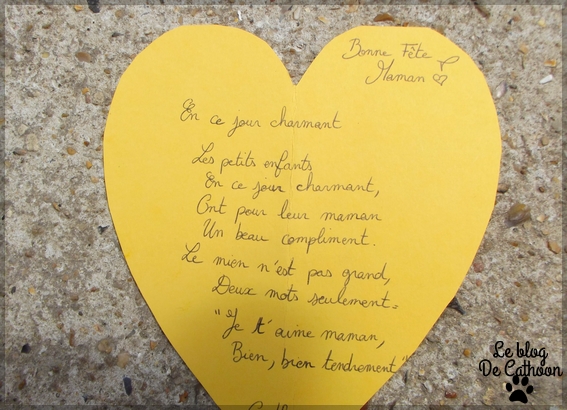 Bonne Fête
Maman
En ce jour charmant
Les petits enfants
En ce jour charmant,
Ont pour leur maman
Un beau compliment.
Le mien n'est pas grand,
Deux mots seulement :
"Je t'aime maman,
Bien, bien tendrement"
Le blog
De Cathoon